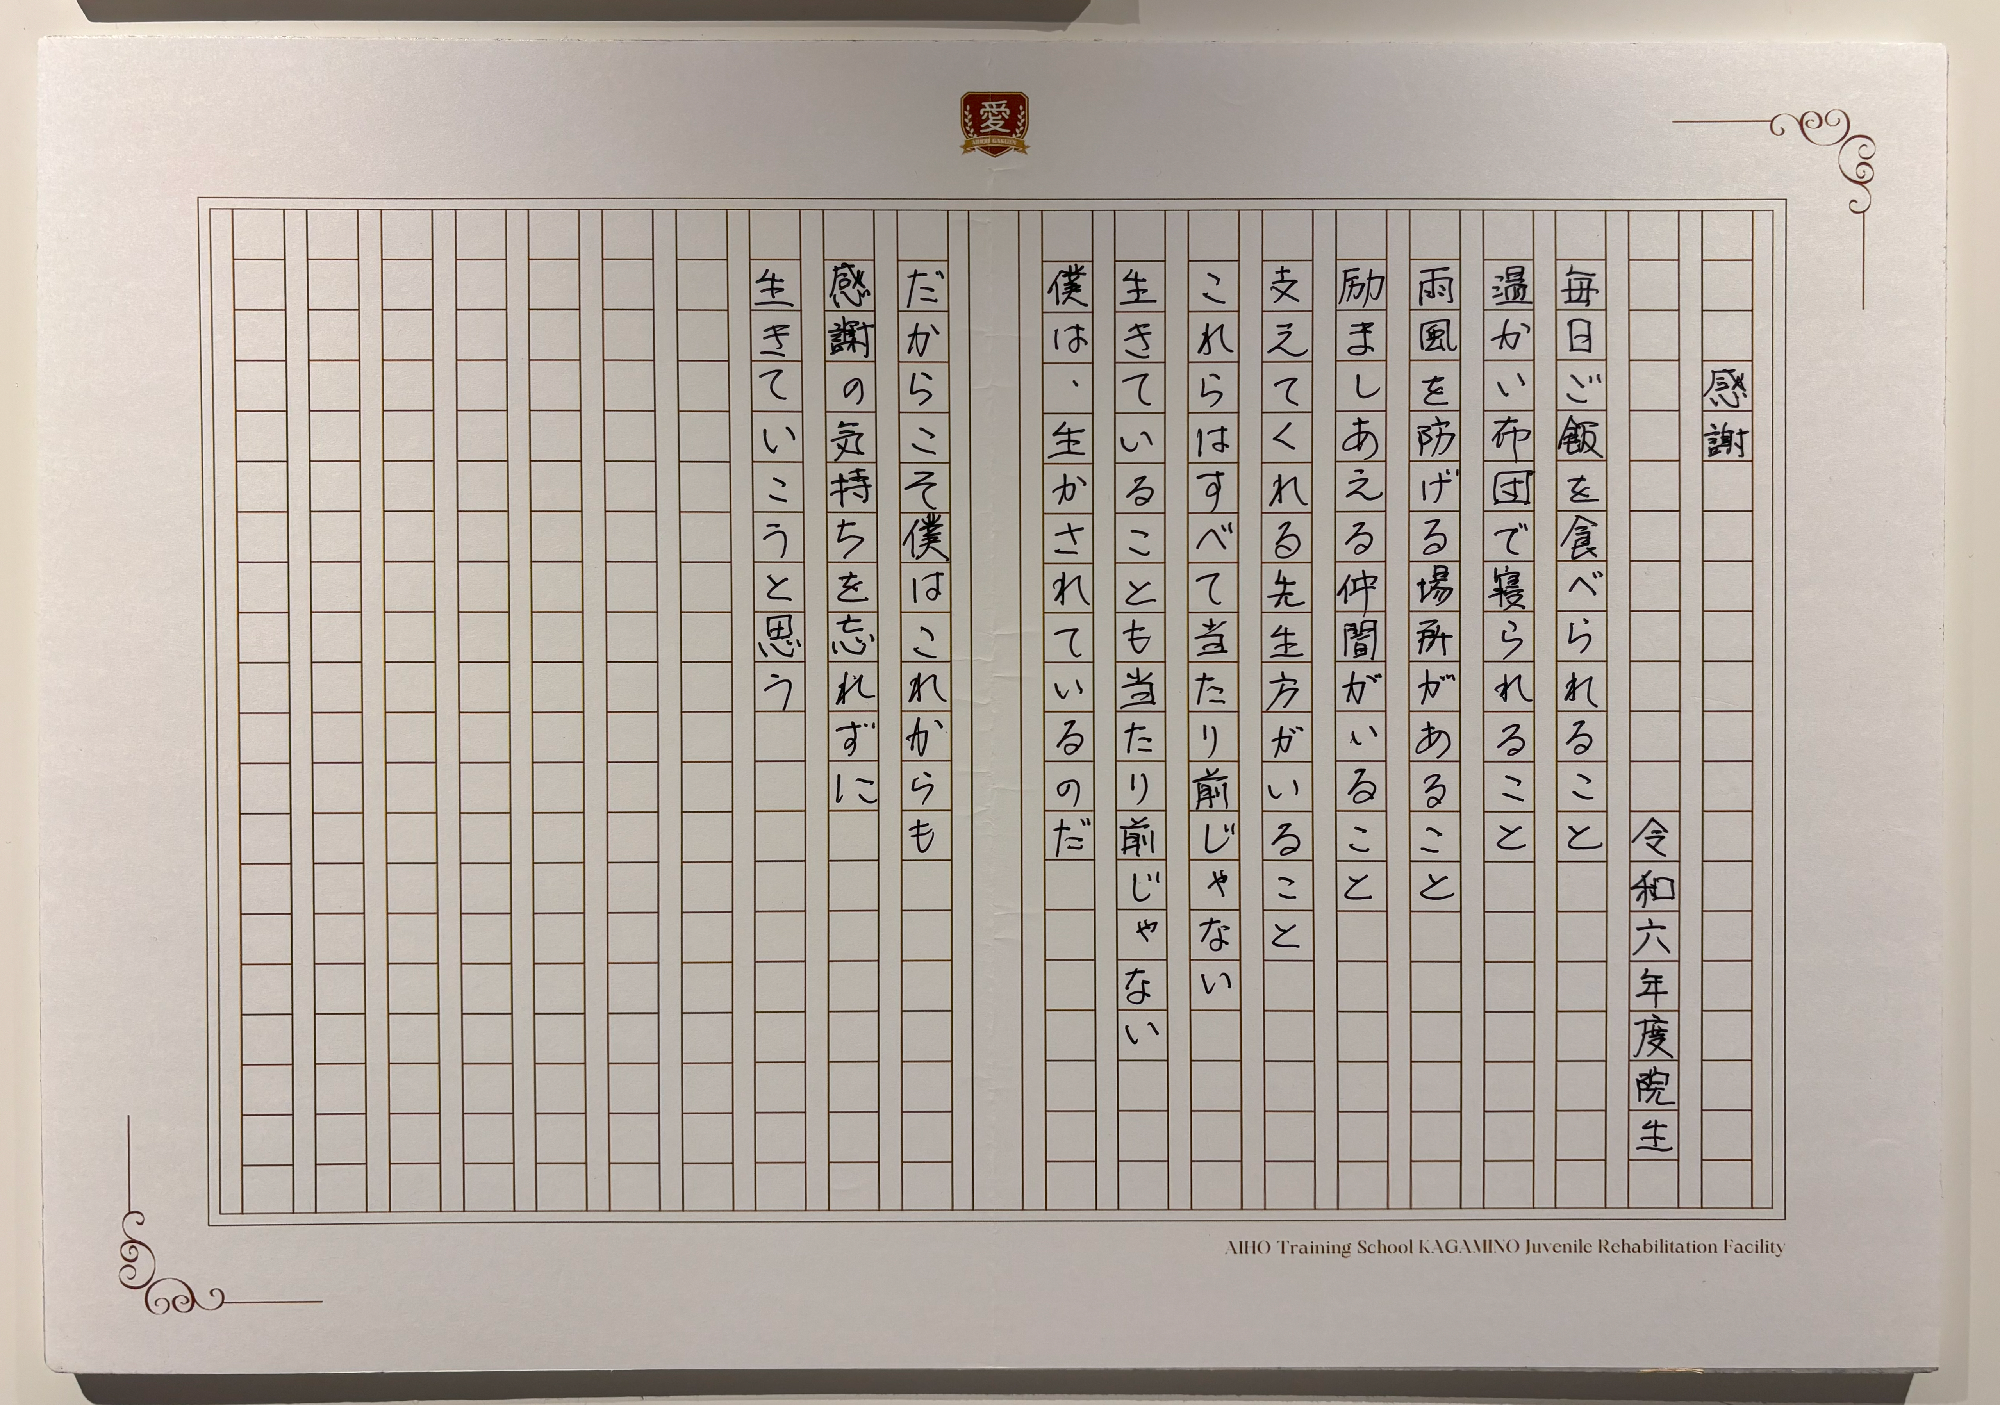 愛
感謝
令和六年度院生
毎日ご飯を食べられること
温かい布団で寝られること
雨風を防げる場所があること
励ましあえる仲間がいること
支えてくれる先生方がいること
これらはすべて当たり前じゃない
生きていることも当たり前じゃない
僕は、生かされているのだ
だからこそ僕はこれからも
感謝の気持ちを忘れずに
生きていこうと思う
AIHO Training School KAGAMINO Juvenile Rehabilitation Facility